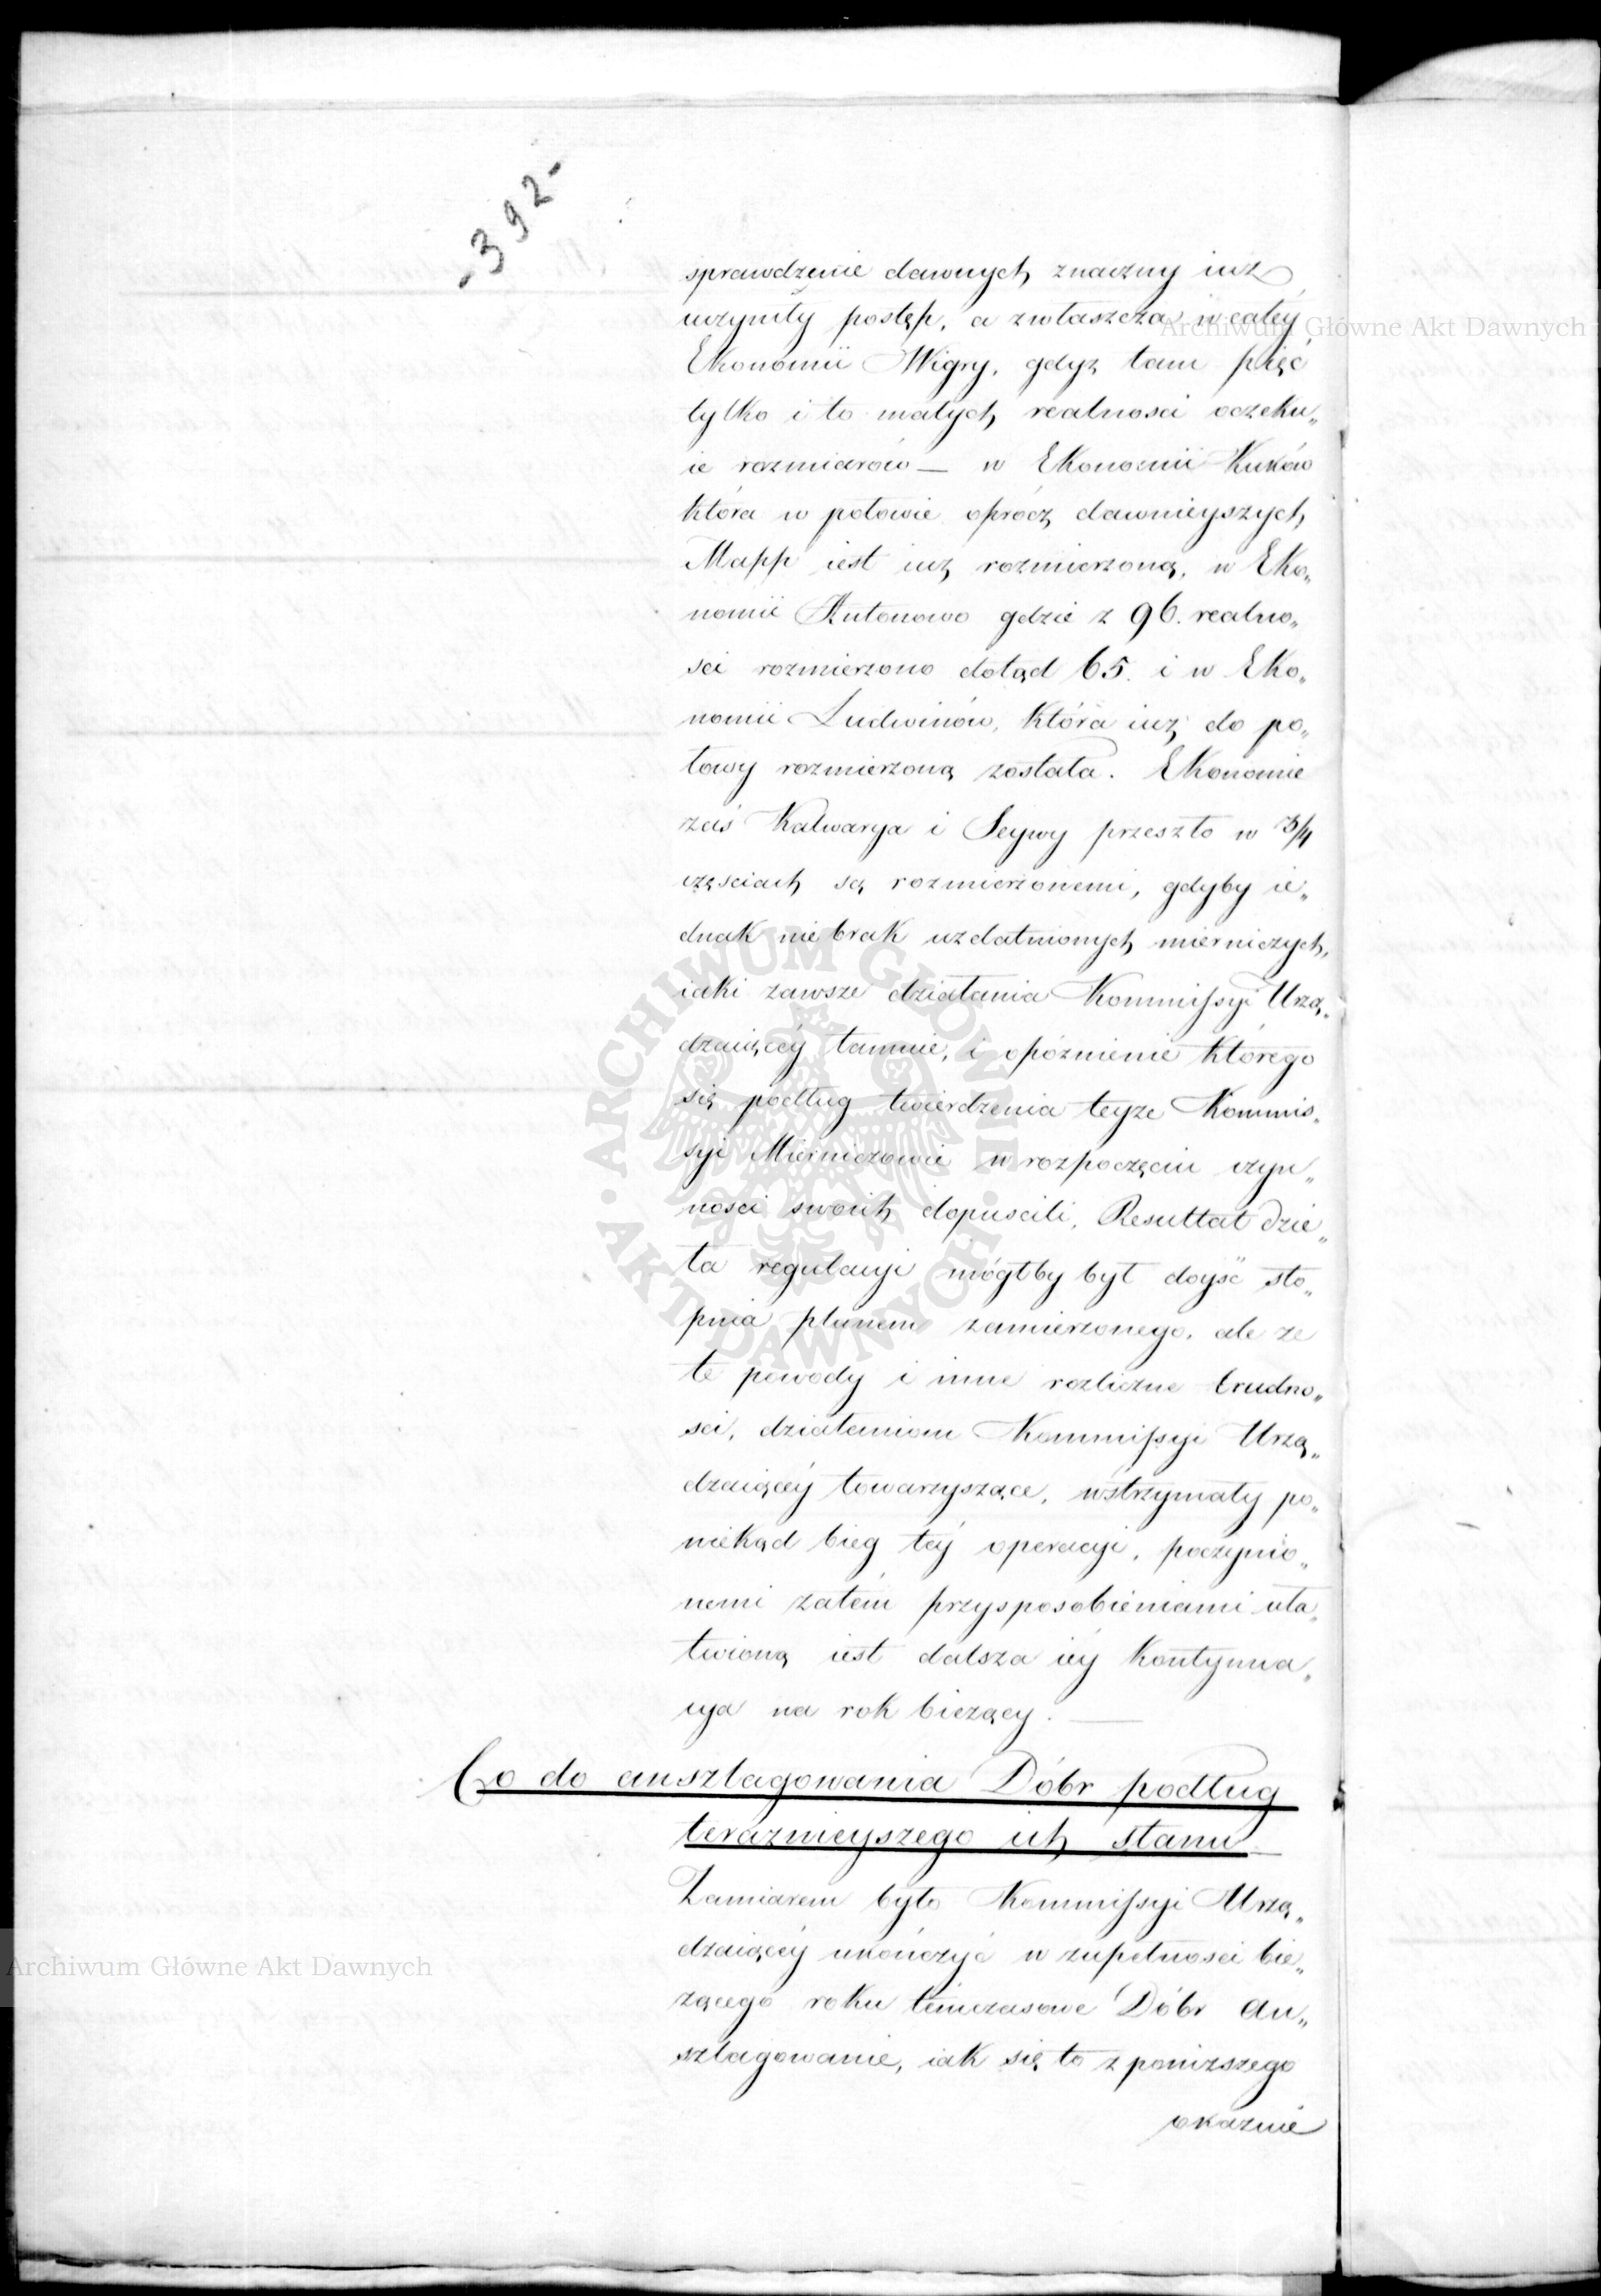 -392-
sprawdzenie dawnych znaczny iuż
uczyniły postęp, a zwłaszcza w całéy
Ekonomii Wigry, gdyż tam pięć
tylko i to małych realnosci oczeku„
ie rozmiarów — w Ekonomii Kuków
która w połowie oprócz dawnieyszych
Mapp iest iuż rozmierzoną, w Eko„
nomii Antonowo gdzie z 96. realno„
sci rozmierzono dotąd 65. i w Eko„
nomii Ludwinów, która iuż do po„
łowy rozmierzoną została. Ekonomie
zaś Kalwarya i Seywy przeszło w 3/4
częsciach są rozmierzonemi, gdyby ie„
dnak nie brak uzdatnionych mierniczych,
iaki zawsze działania Kommissyi Urzą„
dzaiącéy tamuie, i opóznienie którego
się podług twierdzenia teyże Kommis„
syi Mierniczowie w rozpoczęciu czyn„
nosci swoich dopuscili, Resultat dzie„
ła regulacyi mógłby był doyść sto„
pnia planem zamierzonego, ale że
te powody i inne rozliczne trudno„
sci, działaniom Kommissyi Urzą„
dzaiącéy towarzyszące, wstrzymały po„
niekąd bieg téy operacyi, poczynio„
nemi zatém przysposobieniami uła„
twioną iest dalsza iéy kontynua„
cya na rok bieżący. —
Co do anszlagowania Dóbr podług
teraznieyszego ich stanu —
Zamiarem było Kommissyi Urzą„
dzaiącéy ukończyć w zupełnosci bie„
żącego roku témczasowe Dóbr an„
szlagowanie, iak się to z poniższego
okaznie
Archiwum Główne Akt Dawnych
Archiwum Główne Akt Dawnych
ARCHIWUM GŁÓWNE · AKT DAWNYCH ·